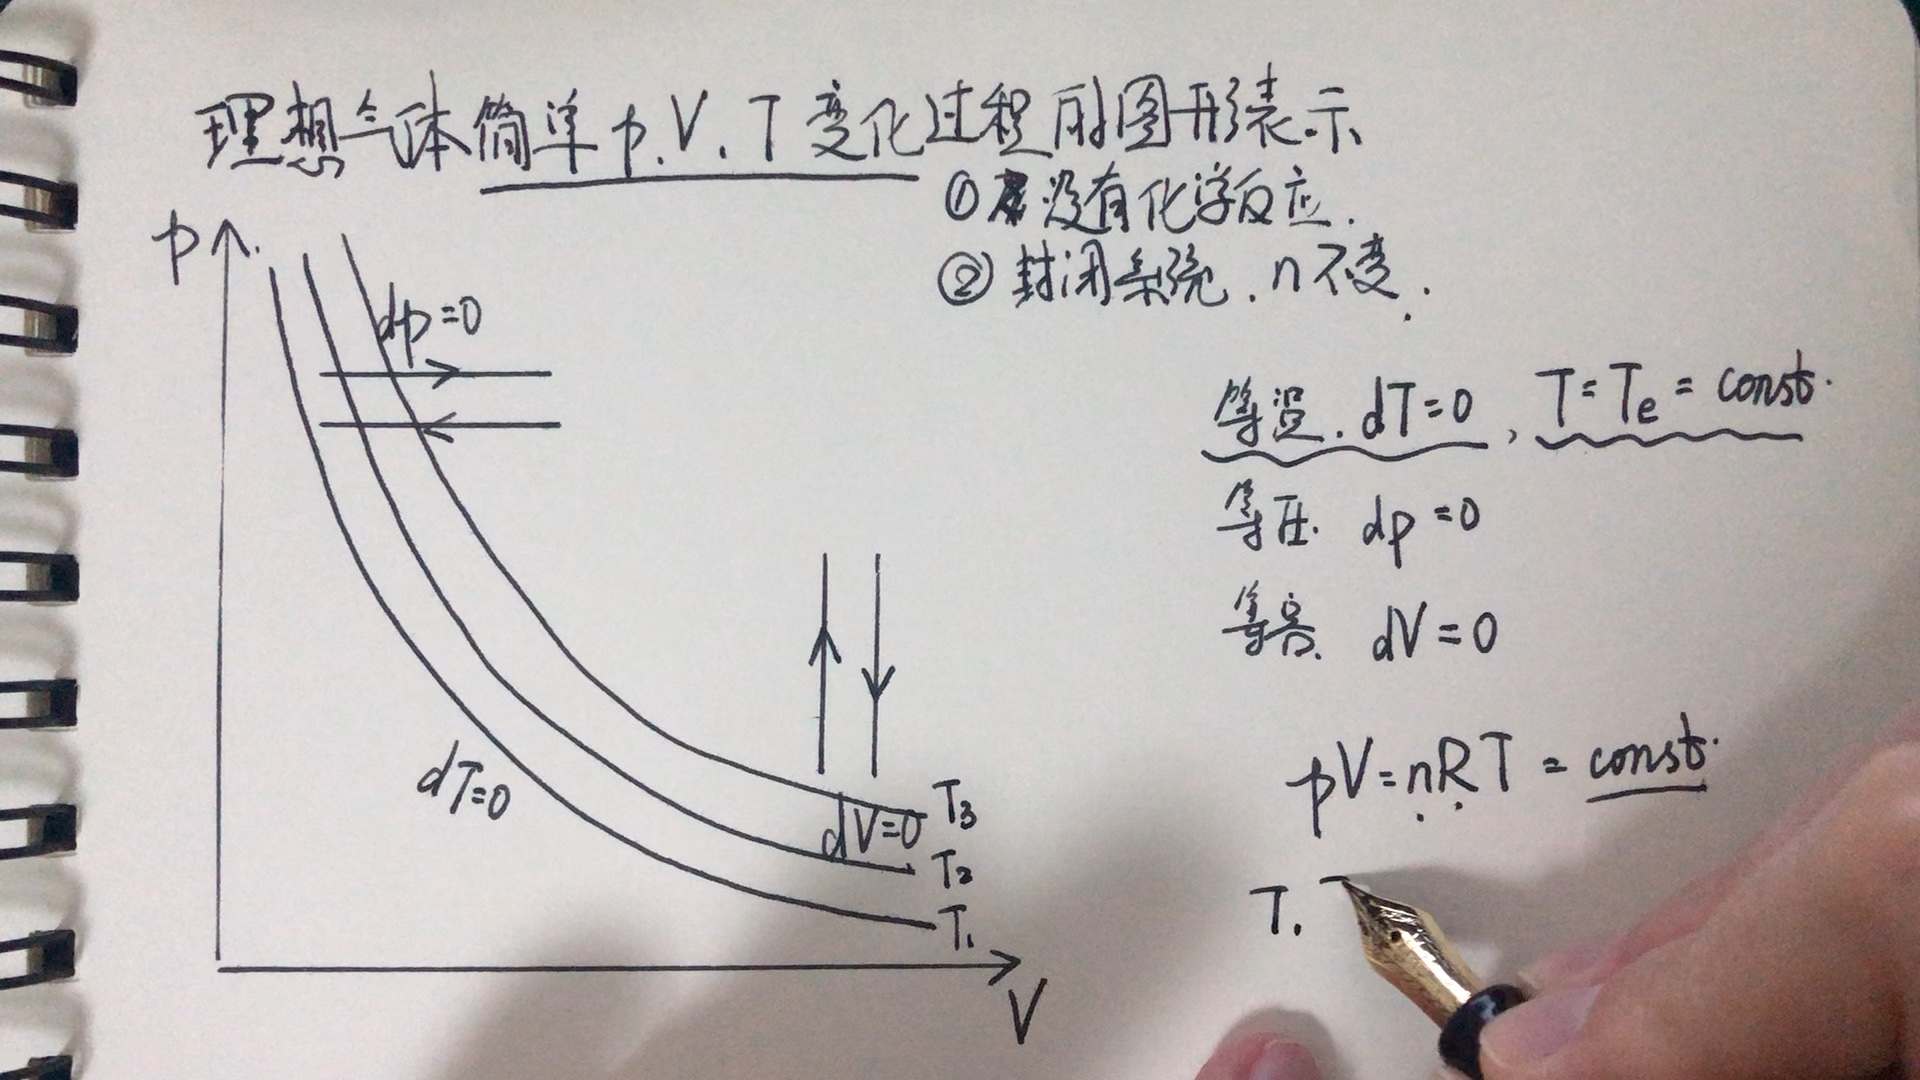 理想气体简单 p.V.T 变化过程的图形表示
① 没有化学反应.
② 封闭系统. n不变.
p
dp=0
等温. dT=0, T=Te=const.
等压. dp=0
等容. dV=0
pV=nRT=const.
dT=0
dV=0
T3
T2
T1
T.
V